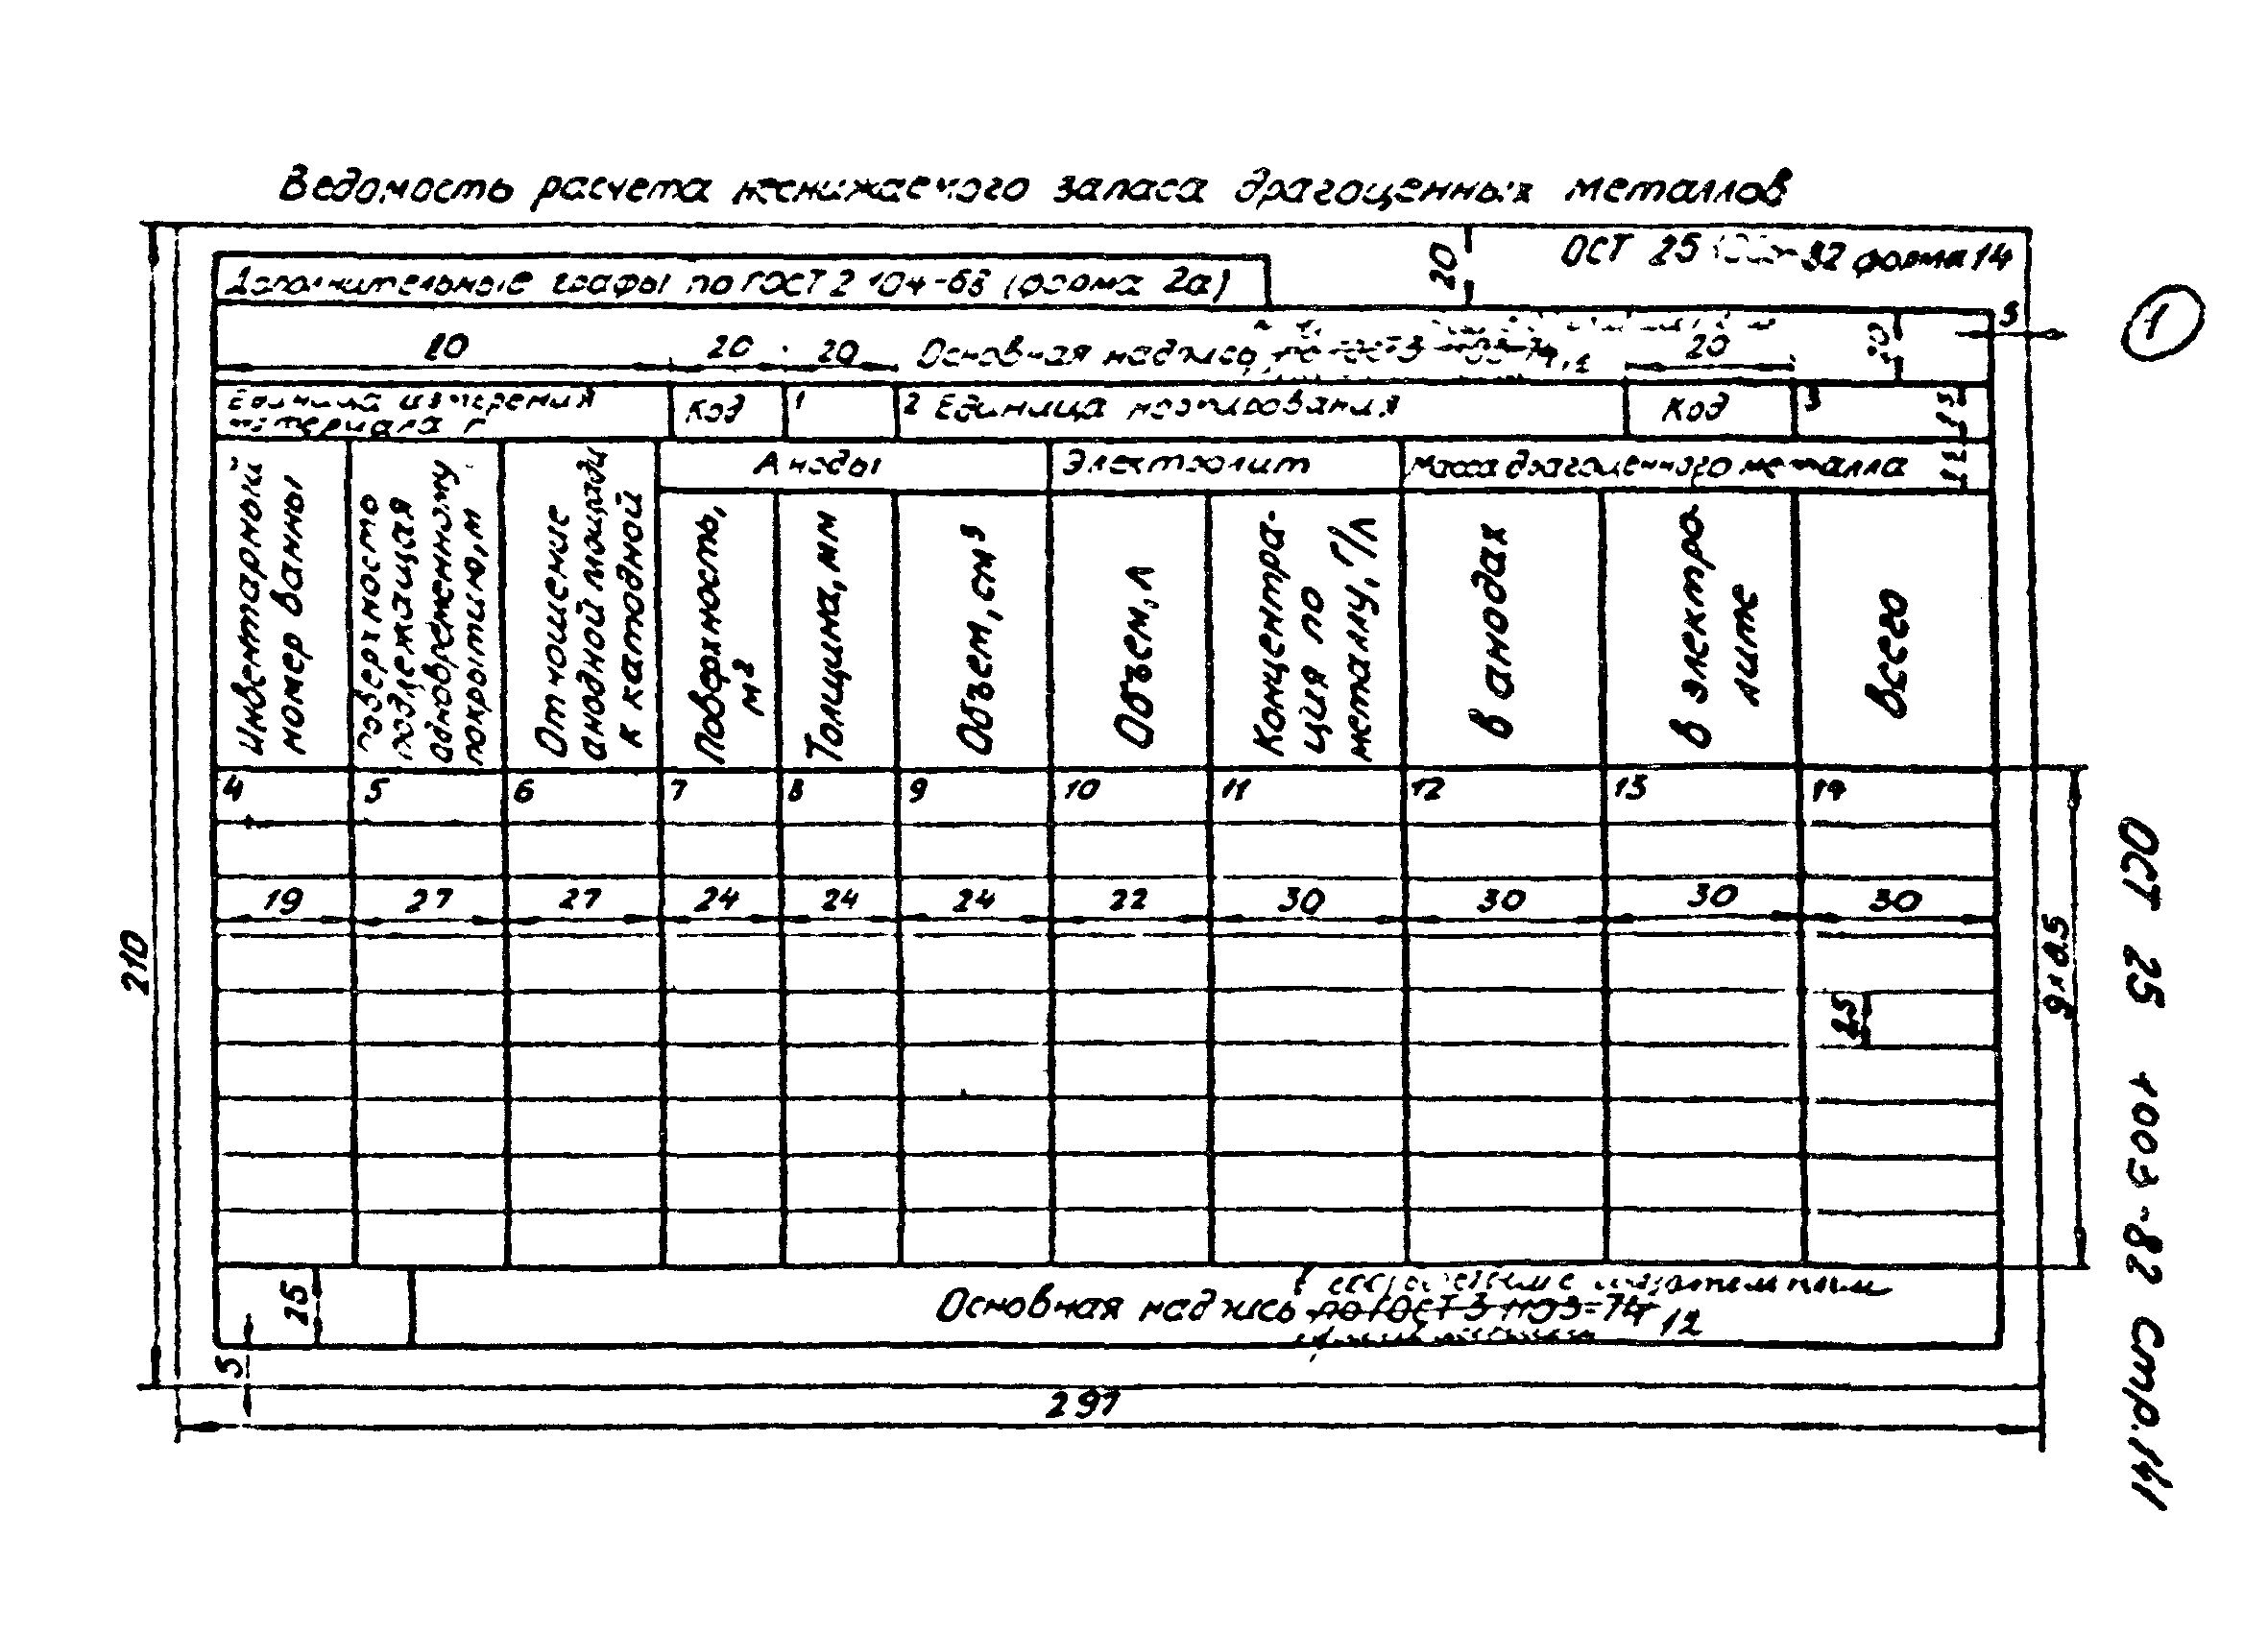 Ведомость расчета неснижаемого запаса драгоценных металлов
ОСТ 25 форма 14
Дополнительные графы по ГОСТ 2 104-68 (форма 2а)
20
80 20 20 Основная надпись 20
5
Единица измерения
материала г
Код 1 2 Единица нормирования Код 3
Аноды Электролит Масса драгоценного металла
Инвентарный
номер ванны
Поверхность
подлежащая
одновременному
покрытию, м
Отношение
анодной площади
к катодной
Поверхность,
м²
Толщина, мм
Объем, см³
Объем, л
Концентра-
ция по
металлу, г/л
в анодах
в электро
лите
всего
4 5 6 7 8 9 10 11 12 13 14
19 27 27 24 24 24 22 30 30 30 30
210
25
Основная надпись по ГОСТ 3 1103-74 12
5
297
1
ОСТ 25 -82 Стр. 141